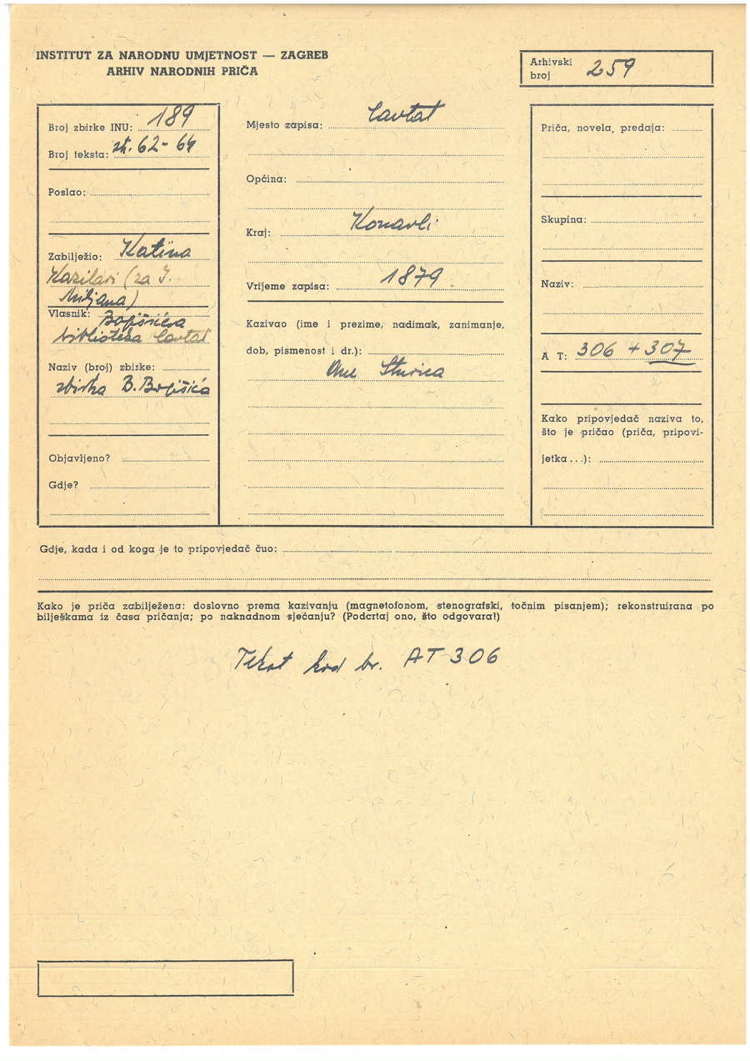 INSTITUT ZA NARODNU UMJETNOST — ZAGREB
ARHIV NARODNIH PRIČA
Arhivski
broj 259
Broj zbirke INU: 189
Broj teksta: str. 62-64
Poslao:
Zabilježio: Katina
(za J.
Vlasnik: Bogišićeva
biblioteka Cavtat
Naziv (broj) zbirke:
zbirka B. Bogišića
Objavljeno?
Gdje?
Mjesto zapisa: Cavtat
Općina:
Kraj: Konavli
Vrijeme zapisa: 1879
Kazivao (ime i prezime, nadimak, zanimanje,
dob, pismenost i dr.):
Priča, novela, predaja:
Skupina:
Naziv:
A T: 306 + 307
Kako pripovjedač naziva to,
što je pričao (priča, pripovi-
jetka...):
Gdje, kada i od koga je to pripovjedač čuo:
Kako je priča zabilježena: doslovno prema kazivanju (magnetofonom, stenografski, točnim pisanjem); rekonstruirana po
bilješkama iz časa pričanja; po naknadnom sjećanju? (Podcrtaj ono, što odgovara!)
Tekst kod br. AT 306